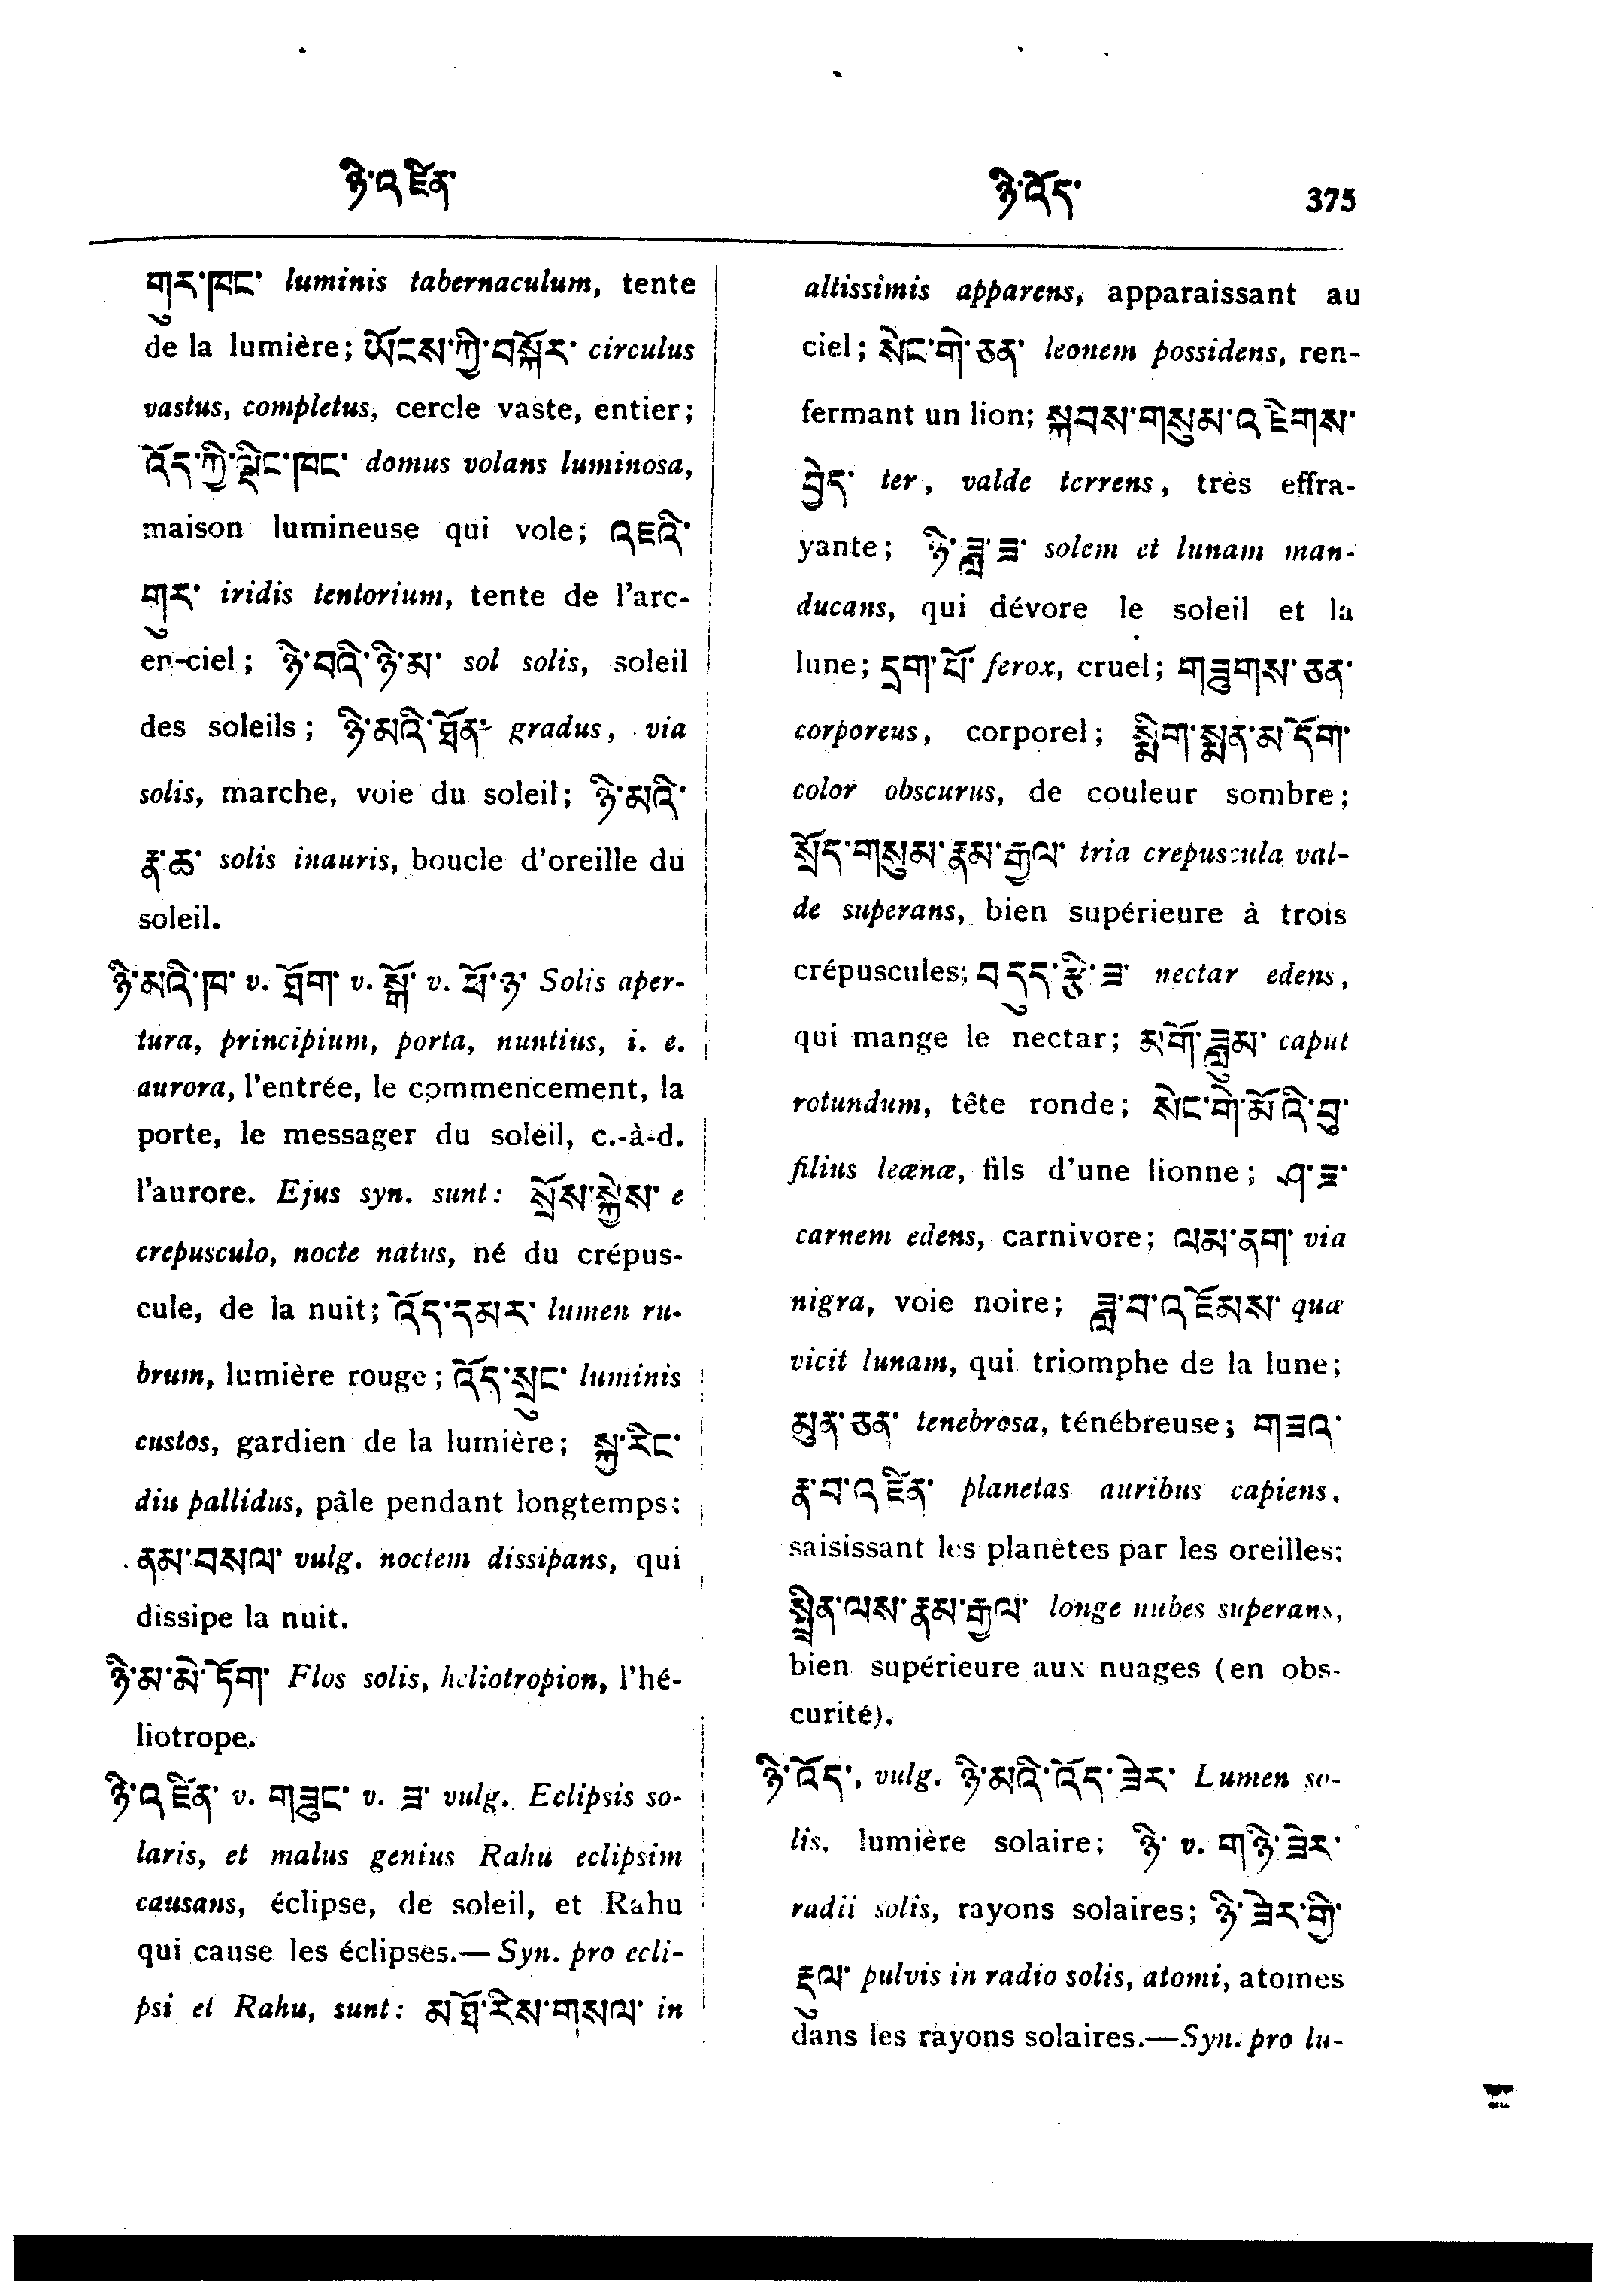 ཉི་འཛིན་
ཉི་འོད་ 375
གུར་ཁང་ luminis tabernaculum, tente
de la lumière; ཡོངས་ཀྱི་བསྐོར་ circulus
vastus, completus, cercle vaste, entier;
འོད་ཀྱི་ལྡིང་ཁང་ domus volans luminosa,
maison lumineuse qui vole; འཇའི་
གུར་ iridis tentorium, tente de l'arc-
en-ciel; ཉི་བའི་ཉི་མ་ sol solis, soleil
des soleils; ཉི་མའི་ཐོན་ gradus, via
solis, marche, voie du soleil; ཉི་མའི་
རྣ་ཆ་ solis inauris, boucle d'oreille du
soleil.
ཉི་མའི་ཁ་ v. ཐོག་ v. སྒོ་ v. ཕོ་ཉ་ Solis aper-
tura, principium, porta, nuntius, i. e.
aurora, l'entrée, le commencement, la
porte, le messager du soleil, c.-à-d.
l'aurore. Ejus syn. sunt: སྲོས་སྐྱེས་ e
crepusculo, nocte natus, né du crépus-
cule, de la nuit; འོད་དམར་ lumen ru-
brum, lumière rouge; འོད་སྲུང་ luminis
custos, gardien de la lumière; སྐྱ་རེང་
diu pallidus, pâle pendant longtemps;
ནམ་བསལ་ vulg. noctem dissipans, qui
dissipe la nuit.
ཉི་མ་མེ་ཏོག་ Flos solis, heliotropion, l'hé-
liotrope.
ཉི་འཛིན་ v. གཟུང་ v. ཟ་ vulg. Eclipsis so-
laris, et malus genius Rahu eclipsim
causans, éclipse, de soleil, et Rahu
qui cause les éclipses.— Syn. pro ecli-
psi et Rahu, sunt: མཐོ་རིས་གསལ་ in
altissimis apparens, apparaissant au
ciel; སེང་གེ་ཅན་ leonem possidens, ren-
fermant un lion; སྐབས་གསུམ་འཇིགས་
བྱེད་ ter, valde terrens, très effra-
yante; ཉི་ཟླ་ཟ་ solem et lunam man-
ducans, qui dévore le soleil et la
lune; དྲག་པོ་ ferox, cruel; གཟུགས་ཅན་
corporeus, corporel; སྨིག་སྨན་མདོག་
color obscurus, de couleur sombre;
སྲོད་གསུམ་རྣམ་རྒྱལ་ tria crepuscula val-
de superans, bien supérieure à trois
crépuscules; བདུད་རྩི་ཟ་ nectar edens,
qui mange le nectar; མགོ་ཟླུམ་ caput
rotundum, tête ronde; སེང་གེ་མོའི་བུ་
filius leænæ, fils d'une lionne; ཤ་ཟ་
carnem edens, carnivore; ལམ་ནག་ via
nigra, voie noire; ཟླ་བ་འཇོམས་ quæ
vicit lunam, qui triomphe de la lune;
མུན་ཅན་ tenebrosa, ténébreuse; གཟའ་
རྣ་བ་འཛིན་ planetas auribus capiens,
saisissant les planètes par les oreilles;
སྤྲིན་ལས་རྣམ་རྒྱལ་ longe nubes superans,
bien supérieure aux nuages (en obs-
curité).
ཉི་འོད་, vulg. ཉི་མའི་འོད་ཟེར་ Lumen so-
lis, lumière solaire; ཉི་ v. གཉི་ཟེར་
radii solis, rayons solaires; ཉི་ཟེར་གྱི་
རྡུལ་ pulvis in radio solis, atomi, atomes
dans les rayons solaires.—Syn. pro lu-